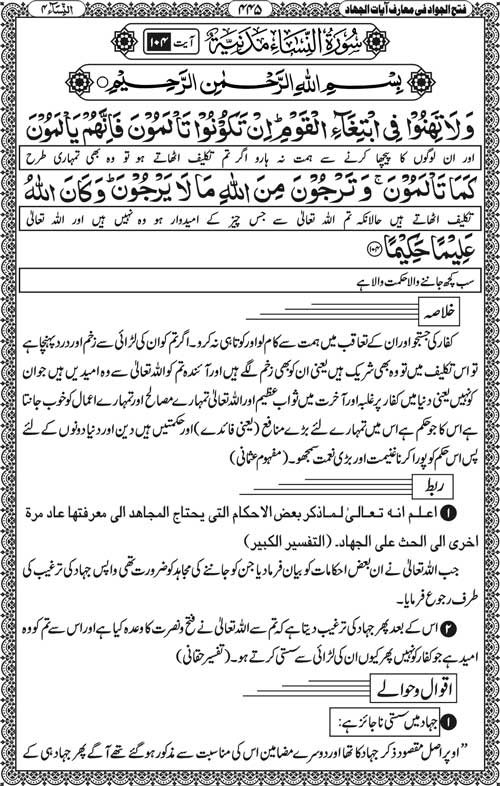 فتح الجواد فی معارف آیات الجهاد ۴۴۵ النساء ۴
سُوْرَةُ النِّسَاءِ مَدَنِيَّةٌ آیت ۱۰۴
بِسْمِ اللهِ الرَّحْمٰنِ الرَّحِيْمِ
وَلَا تَهِنُوْا فِي ابْتِغَآءِ الْقَوْمِ ؕ اِنْ تَكُوْنُوْا تَاْلَمُوْنَ فَاِنَّهُمْ يَاْلَمُوْنَ
اور ان لوگوں کا پیچھا کرنے سے ہمت نہ ہارو اگر تم تکلیف اٹھاتے ہو تو وہ بھی تمہاری طرح
كَمَا تَاْلَمُوْنَ ۚ وَتَرْجُوْنَ مِنَ اللهِ مَا لَا يَرْجُوْنَ ؕ وَكَانَ اللهُ
تکلیف اٹھاتے ہیں حالانکہ تم اللہ تعالیٰ سے جس چیز کے امیدوار ہو وہ نہیں ہیں اور اللہ تعالیٰ
عَلِيْمًا حَكِيْمًا ۱۰۴
سب کچھ جاننے والا حکمت والا ہے
خلاصہ
کفار کی جستجو اور ان کے تعاقب میں ہمت سے کام لو اور کوتاہی نہ کرو۔ اگر تم کو ان کی لڑائی سے زخم اور درد پہنچا ہے
تو اس تکلیف میں تو وہ بھی شریک ہیں یعنی ان کو بھی زخم لگے ہیں اور آئندہ تم کو اللہ تعالیٰ سے وہ امیدیں ہیں جو ان
کو نہیں یعنی دنیا میں کفار پر غلبہ اور آخرت میں ثواب عظیم اور اللہ تعالیٰ تمہارے مصالح اور تمہارے اعمال کو خوب جانتا
ہے اس کا جو حکم ہے اس میں تمہارے لئے بڑے منافع (یعنی فائدے) اور حکمتیں ہیں دین اور دنیا دونوں کے لئے
پس اس حکم کو پورا کرنا غنیمت اور بڑی نعمت سمجھو۔ (مفہوم عثمانی)
ربط
۱ اعلم انه تعالیٰ لما ذكر بعض الاحكام التی يحتاج المجاهد الی معرفتها عاد مرة
اخری الی الحث علی الجهاد. (التفسير الكبير)
جب اللہ تعالیٰ نے ان بعض احکامات کو بیان فرما دیا جن کو جاننے کی مجاہد کو ضرورت تھی واپس جہاد کی ترغیب کی
طرف رجوع فرمایا۔
۲ اس کے بعد پھر جہاد کی ترغیب دیتا ہے کہ تم سے اللہ تعالیٰ نے فتح و نصرت کا وعدہ کیا ہے اور اس سے تم کو وہ
امید ہے جو کفار کو نہیں پھر کیوں ان کی لڑائی سے سستی کرتے ہو۔ (تفسیر حقانی)
اقوال و حوالے
۱ جہاد میں سستی ناجائز ہے:
”اوپر اصل مقصود ذکر جہاد کا تھا اور دوسرے مضامین اس کی مناسبت سے مذکور ہو گئے تھے آگے پھر جہاد ہی کے